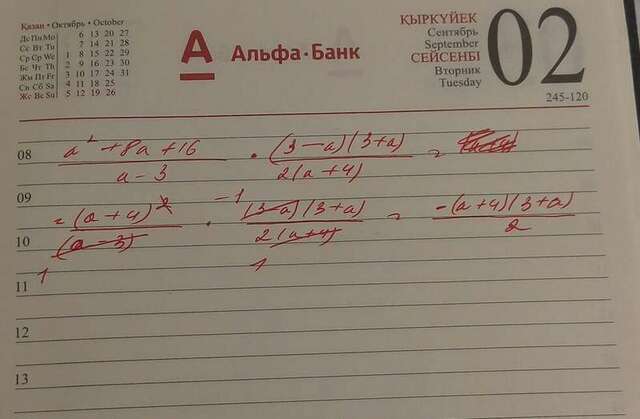 Қазан • Октябрь • October
Дс Пн Mo 6 13 20 27
Сс Вт Tu 7 14 21 28
Ср Ср We 1 8 15 22 29
Бс Чт Th 2 9 16 23 30
Жм Пт Fr 3 10 17 24 31
Сн Сб Sa 4 11 18 25
Жс Вс Su 5 12 19 26
А Альфа·Банк
ҚЫРКҮЙЕК
Сентябрь
September
СЕЙСЕНБІ
Вторник
Tuesday
02
245-120
08 (a² + 8a + 16)/(a - 3) · ((3 - a)(3 + a))/(2(a + 4)) =
09
10 = (a + 4)²/(a - 3) · ((3 - a)(3 + a))/(2(a + 4)) = (-(a + 4)(3 + a))/2
-1
1 1
11
12
13